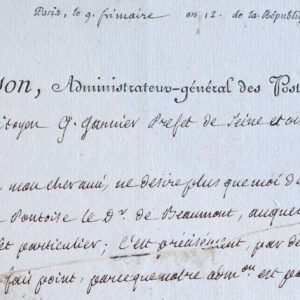 Paris, le 9. frimaire an 12. de la Républi
son, Administrateur-général des Post
itoyen G. Garnier Préfet de Seine et oi
, mon cher ami, ne desire plus que moi de
Pontoise le Dr. de Beaumont, auquel
et particulier; c'est précisement, par de
fait point, parceque notre admon est pa